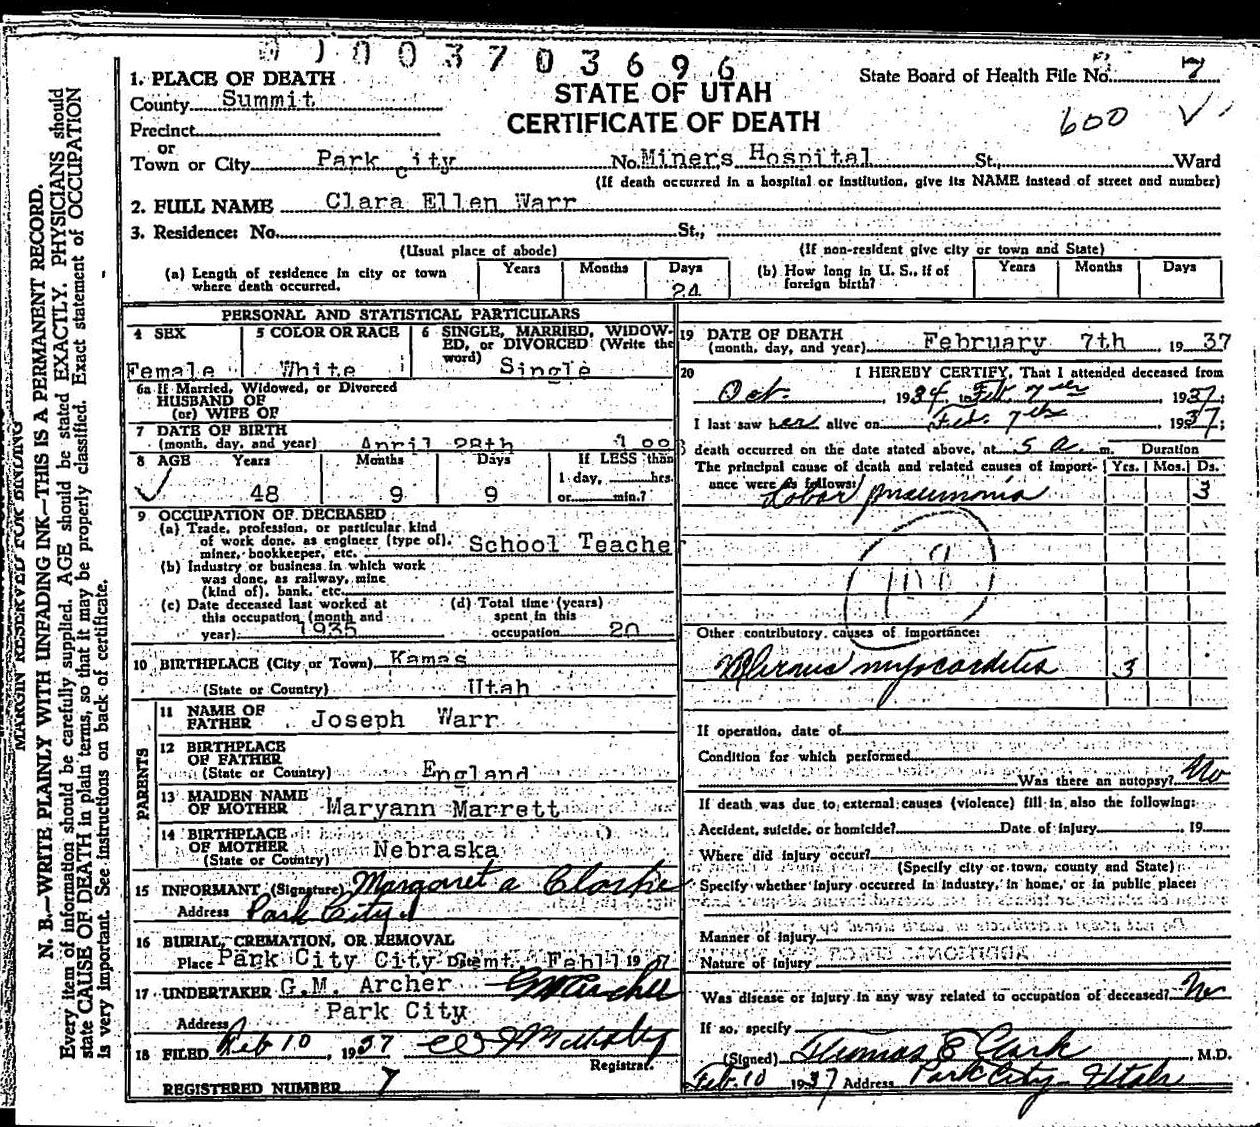 01003703696
1. PLACE OF DEATH
STATE OF UTAH
CERTIFICATE OF DEATH
State Board of Health File No. 7
600 V
County Summit
Precinct
or
Town or City Park City No. Miners Hospital St., Ward
(If death occurred in a hospital or institution, give its NAME instead of street and number)
2. FULL NAME Clara Ellen Warr
3. Residence: No. St.,
(Usual place of abode) (If non-resident give city or town and State)
(a) Length of residence in city or town where death occurred. Years Months Days 24
(b) How long in U. S., if of foreign birth? Years Months Days
PERSONAL AND STATISTICAL PARTICULARS
4 SEX Female
5 COLOR OR RACE White
6 SINGLE, MARRIED, WIDOWED, or DIVORCED (Write the word) Single
6a If Married, Widowed, or Divorced
HUSBAND OF
(or) WIFE OF
7 DATE OF BIRTH
(month, day, and year) April 28th
8 AGE Years Months Days If LESS than
48 9 9 1 day, hrs.
or min.?
9 OCCUPATION OF DECEASED
(a) Trade, profession, or particular kind
of work done, as engineer (type of),
miner, bookkeeper, etc. School Teacher
(b) Industry or business in which work
was done, as railway, mine
(kind of), bank, etc.
(c) Date deceased last worked at
this occupation (month and
year) 1935
(d) Total time (years)
spent in this
occupation 20
10 BIRTHPLACE (City or Town) Kamas
(State or Country) Utah
PARENTS
11 NAME OF
FATHER Joseph Warr
12 BIRTHPLACE
OF FATHER
(State or Country) England
13 MAIDEN NAME
OF MOTHER Maryann Marrett
14 BIRTHPLACE
OF MOTHER
(State or Country) Nebraska
15 INFORMANT (Signature) Margaret a Clarke
Address Park City
16 BURIAL, CREMATION, OR REMOVAL
Place Park City City Cemt. Date Feb 11 1937
17 UNDERTAKER G.M. Archer GM Archer
Address Park City
18 FILED Feb 10, 1937
Registrar.
REGISTERED NUMBER 7
19 DATE OF DEATH
(month, day, and year) February 7th 1937
20 I HEREBY CERTIFY, That I attended deceased from
Oct. 1934 to Feb 7th 1937;
I last saw her alive on Feb. 7th 1937;
death occurred on the date stated above, at 5 a. m. Duration
The principal cause of death and related causes of importance were as follows: Yrs. Mos. Ds.
Lobar pneumonia 3
108
Other contributory causes of importance:
myocarditis 3
If operation, date of
Condition for which performed
Was there an autopsy? No
If death was due to external causes (violence) fill in also the following:
Accident, suicide, or homicide? Date of injury , 19
Where did injury occur?
(Specify city or town, county and State)
Specify whether injury occurred in industry, in home, or in public place:
Manner of injury
Nature of injury
Was disease or injury in any way related to occupation of deceased? No
If so, specify
(Signed) Thomas E Clark, M.D.
Feb. 10 1937 Address Park City Utah
MARGIN RESERVED FOR BINDING
N. B.—WRITE PLAINLY WITH UNFADING INK—THIS IS A PERMANENT RECORD.
Every item of information should be carefully supplied. AGE should be stated EXACTLY. PHYSICIANS should
state CAUSE OF DEATH in plain terms, so that it may be properly classified. Exact statement of OCCUPATION
is very important. See instructions on back of certificate.